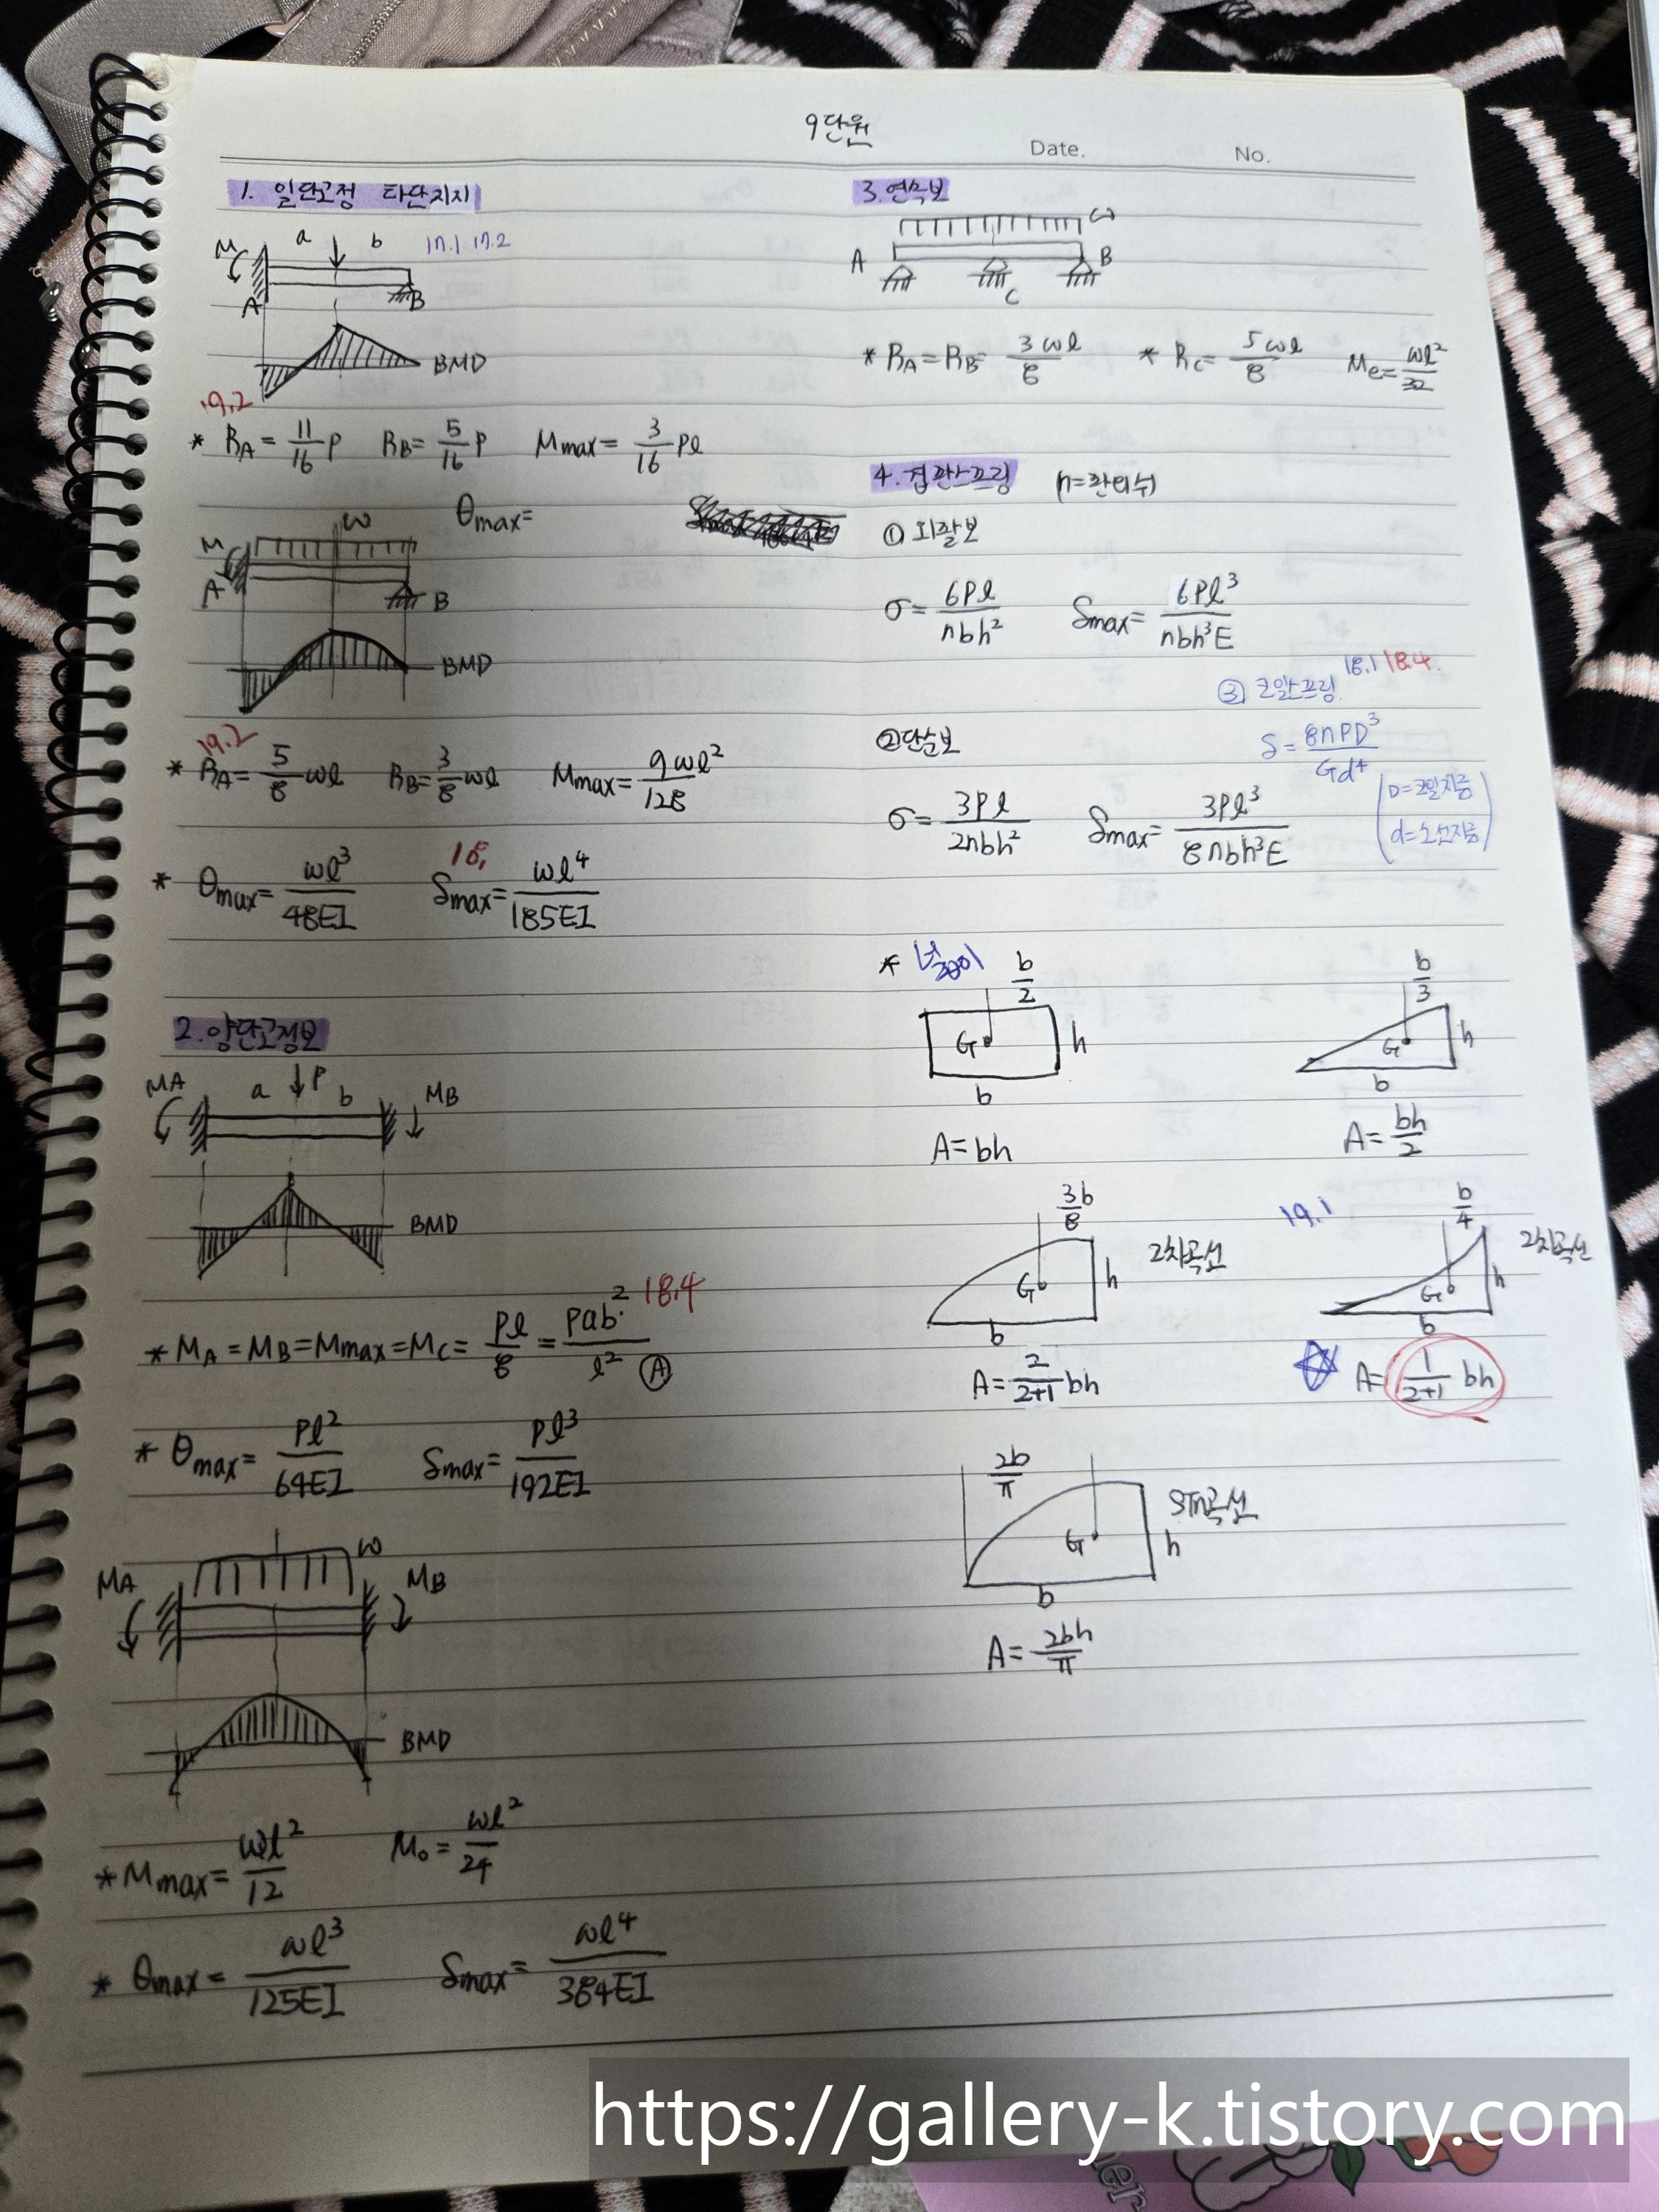 9단원
Date.
No.
1. 일단고정 타단지지
M a b 17.1 17.2
A B
BMD
19.2
* RA = 11/16 P RB = 5/16 P Mmax = 3/16 Pl
θmax=
M ω
A B
BMD
19.2
* RA = 5/8 ωl RB = 3/8 ωl Mmax = 9ωl²/128
* θmax = ωl³/48EI δmax = ωl⁴/185EI
2. 양단고정보
MA a P b MB
BMD
* MA = MB = Mmax = MC = Pl/8 = Pab²/l² Ⓐ 18.4
* θmax = Pl²/64EI δmax = Pl³/192EI
ω
MA MB
BMD
* Mmax = ωl²/12 M₀ = ωl²/24
* θmax = ωl³/125EI δmax = ωl⁴/384EI
3. 연속보
ω
A B
C
* RA = RB = 3ωl/8 * RC = 5ωl/8 Me = ωl²/32
4. 겹판스프링 (n=판의수)
① 외팔보
σ = 6Pl/nbh² δmax = 6Pl³/nbh³E
18.1 18.4.
③ 코일스프링
δ = 8nPD³/Gd⁴
(D=코일지름
d=소선지름)
② 단순보
σ = 3Pl/2nbh² δmax = 3Pl³/8nbh³E
* 넓이
b/2
G h
b
A = bh
b/3
G h
b
A = bh/2
3b/8
2차곡선
G h
b
A = 2/(2+1) bh
19.1
b/4
2차곡선
G h
b
☆ A = 1/(2+1) bh
2b/π
sin곡선
G h
b
A = 2bh/π
https://gallery-k.tistory.com